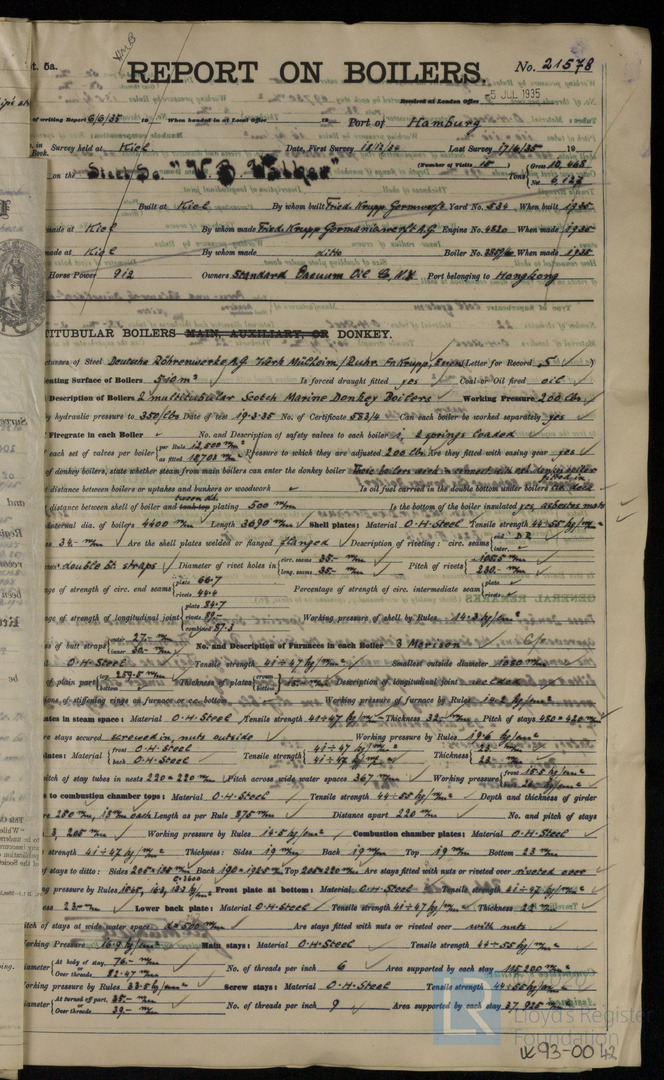 pt. 5a.
REPORT ON BOILERS.
No. 21578
Received at London Office 5 JUL 1935
of writing Report 6/6/35 19 When handed in at Local Office 19 Port of Hamburg
Survey held at Kiel Date, First Survey 12/12/34 Last Survey 17/6/35 19
Book. (Number of Visits
on the Steel Sc. "W. B. Walker" Tons { Gross 10,468
Net 6,137
Built at Kiel By whom built Fried. Krupp Germ.werft Yard No. 534 When built 1935
made at Kiel By whom made Fried. Krupp Germaniawerft A.G. Engine No. 4520 When made 1935
made at Kiel By whom made ditto Boiler No. When made 1935
Horse Power 912 Owners Standard Vacuum Oil Co, N.Y. Port belonging to Hongkong
TITUBULAR BOILERS MAIN, AUXILIARY, OR DONKEY.
of Steel Deutsche Röhrenwerke A.G. Werk Mülheim/Ruhr. Fr. Krupp, Essen (Letter for Record S )
Heating Surface of Boilers 510 m² Is forced draught fitted yes Coal or Oil fired oil
Description of Boilers 2 multitubular Scotch Marine Donkey Boilers Working Pressure 200 lbs.
by hydraulic pressure to 350 lbs Date of test 19.3.35 No. of Certificate 583/4 Can each boiler be worked separately yes
Firegrate in each Boiler No. and Description of safety valves to each boiler 1, 2 springs loaded
each set of valves per boiler { per Rule 12,500 m/m²
as fitted 12,708 m/m² Pressure to which they are adjusted 200 lbs. Are they fitted with easing gear yes
of donkey boilers, state whether steam from main boilers can enter the donkey boiler
distance between boilers or uptakes and bunkers or woodwork Is oil fuel carried in the double bottom under boilers
distance between shell of boiler and tank top plating 500 m/m Is the bottom of the boiler insulated yes, asbestos mats
Material dia. of boilers 4400 m/m Length 3690 m/m Shell plates: Material O.H. Steel Tensile strength 44÷55 kg/m/m²
34 m/m Are the shell plates welded or flanged flanged Description of riveting: circ. seams { end D.R.
inter.
double butt straps Diameter of rivet holes in { circ. seams 35 m/m
long. seams 35 m/m Pitch of rivets { 105.5 m/m
230 m/m
age of strength of circ. end seams { plate 66.7
rivets 44.4 Percentage of strength of circ. intermediate seam { plate
rivets
age of strength of longitudinal joint { plate 84.7
rivets
combined 87.3 Working pressure of shell by Rules 14.3 kg/cm²
of butt straps { outer 27 m/m
inner 30 m/m No. and Description of Furnaces in each Boiler 3 Morison
O.H. Steel Tensile strength 41÷47 kg/m/m² Smallest outside diameter 1050 m/m
of plain part { top 259.5 m/m
bottom Thickness of plates { crown
bottom 15 m/m Description of longitudinal joint welded
of stiffening rings on furnace or c.c. bottom Working pressure of furnace by Rules 14.2 kg/cm²
ates in steam space: Material O.H. Steel Tensile strength 41÷47 kg/m/m² Thickness 32 m/m Pitch of stays 480×420 m/m
are stays secured screwed in, nuts outside Working pressure by Rules 19.6 kg/cm²
plates: Material { front O.H. Steel
back O.H. Steel Tensile strength { 41÷47 kg/m/m²
41÷47 kg/m/m² Thickness { 23 m/m
23 m/m
pitch of stay tubes in nests 220×220 m/m Pitch across wide water spaces 367 m/m Working pressure { front 15.5 kg/cm²
back
to combustion chamber tops: Material O.H. Steel Tensile strength 44÷55 kg/m/m² Depth and thickness of girder
250 m/m, 18 m/m each Length as per Rule 875 m/m Distance apart 220 m/m No. and pitch of stays
3, 205 m/m Working pressure by Rules 14.5 kg/cm² Combustion chamber plates: Material O.H. Steel
strength 41÷47 kg/m/m² Thickness: Sides 19 m/m Back 19 m/m Top 19 m/m Bottom 23 m/m
of stays to ditto: Sides 205×185 m/m Back 190×192.5 m/m Top 205×220 m/m Are stays fitted with nuts or riveted over riveted over
pressure by Rules Front plate at bottom: Material O.H. Steel Tensile strength 41÷47 kg/m/m²
23 m/m Lower back plate: Material O.H. Steel Tensile strength 41÷47 kg/m/m² Thickness 22 m/m
Pitch of stays at wide water space Are stays fitted with nuts or riveted over with nuts
Working Pressure 16.9 kg/cm² Main stays: Material O.H. Steel Tensile strength 44÷55 kg/m/m²
Diameter { At body of stay, 76 m/m
or
Over threads 82.47 m/m No. of threads per inch 6 Area supported by each stay 115200 m/m²
Working pressure by Rules 33.5 kg/cm² Screw stays: Material O.H. Steel Tensile strength 44÷55 kg/m/m²
Diameter { At turned off part, 35 m/m
or
Over threads 39 m/m No. of threads per inch 9 Area supported by each stay 37,925 m/m²
LR Lloyd's Register
Foundation
W93-0042